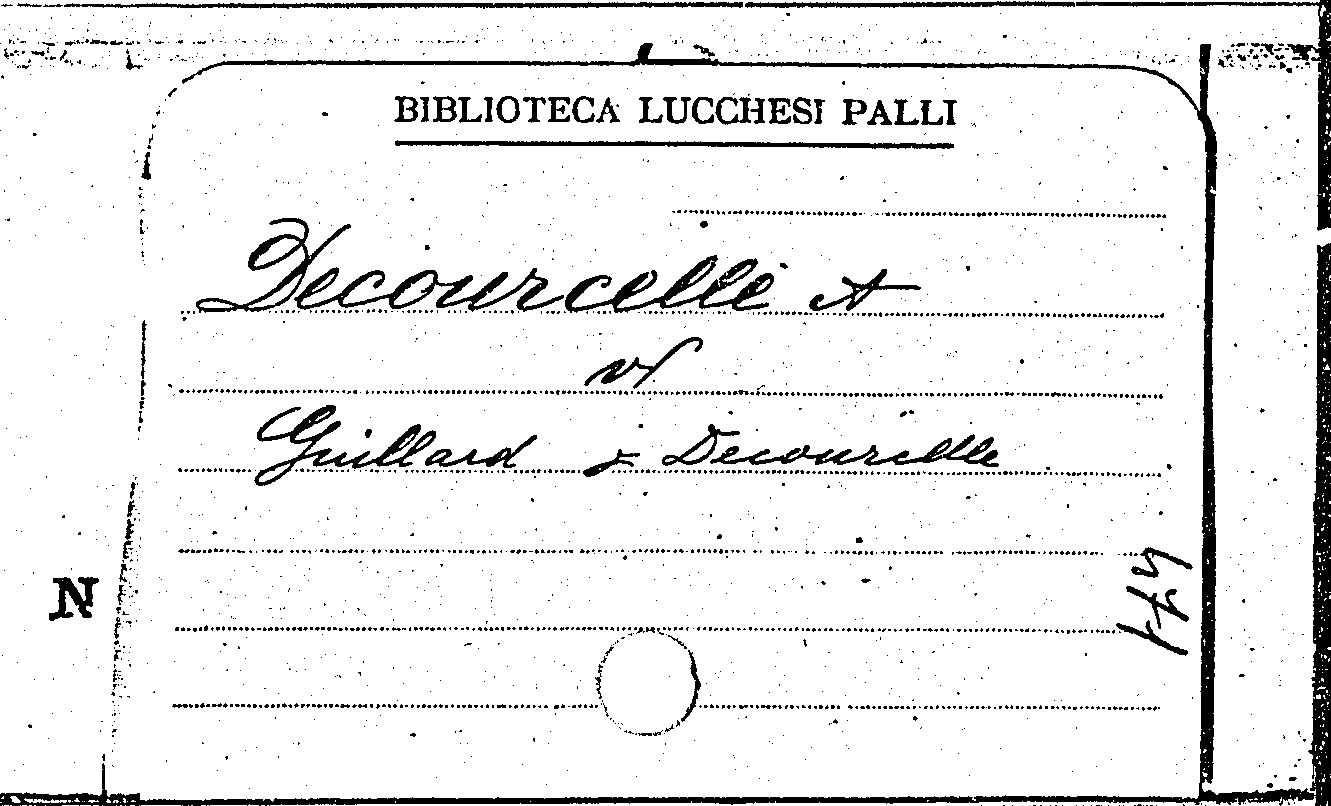 BIBLIOTECA LUCCHESI PALLI
Decourcelle A
v
Guillard & Decourcelle
N